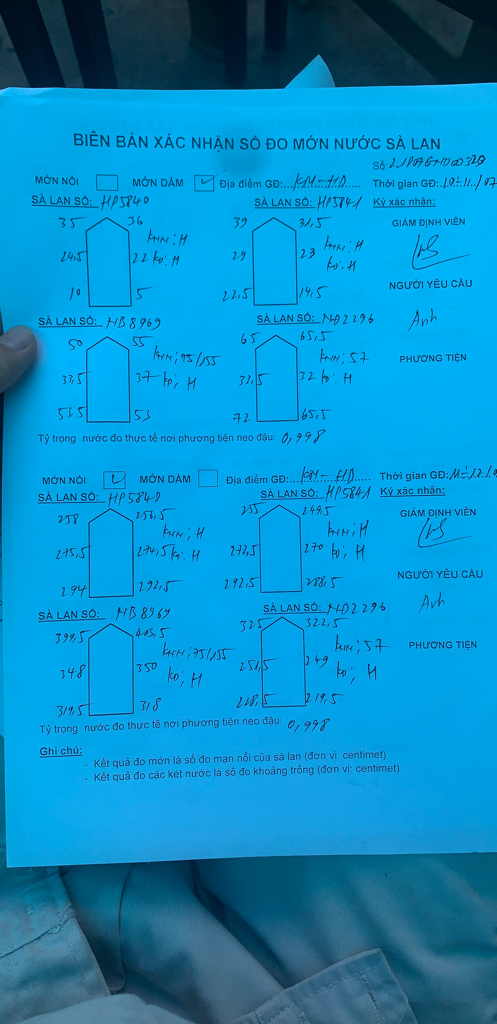 BIÊN BẢN XÁC NHẬN SỐ ĐO MỚN NƯỚC SÀ LAN
Số:
MỚN NỔI MỚN DẦM ✓ Địa điểm GĐ:... KM-HD..... Thời gian GĐ:
SÀ LAN SỐ: HP5840 SÀ LAN SỐ: HP5841 Ký xác nhận:
35 36 39 31,5 GIÁM ĐỊNH VIÊN
KNN: H KNN: H
24,5 22 KĐ: H 29 23 KĐ: H
10 5 22,5 14,5 NGƯỜI YÊU CẦU
Anh
SÀ LAN SỐ: NB8969 SÀ LAN SỐ: NĐ2296
50 55 65 65,5
KNN: 95/155 KNN: 57 PHƯƠNG TIỆN
33,5 37 KĐ: H 32,5 32 KĐ: H
53,5 53 72 65,5
Tỷ trọng nước đo thực tế nơi phương tiện neo đậu: 0,998
MỚN NỔI ✓ MỚN DẦM Địa điểm GĐ:.... KM-HD Thời gian GĐ:
SÀ LAN SỐ: HP5840 SÀ LAN SỐ: HP5841 Ký xác nhận:
258 256,5 255 249,5 GIÁM ĐỊNH VIÊN
KNN: H KNN: H
275,5 274,5 KĐ: H 272,5 270 KĐ: H
294 292,5 292,5 288,5 NGƯỜI YÊU CẦU
Anh
SÀ LAN SỐ: NB8969 SÀ LAN SỐ: NĐ2296
399,5 403,5 325 322,5
KNN: 75/155 KNN: 57 PHƯƠNG TIỆN
348 350 KĐ: H 251,5 249 KĐ: H
319,5 318 228,5 219,5
Tỷ trọng nước đo thực tế nơi phương tiện neo đậu: 0,998
Ghi chú:
- Kết quả đo mớn là số đo mạn nổi của sà lan (đơn vị: centimet)
- Kết quả đo các két nước là số đo khoảng trống (đơn vị: centimet)